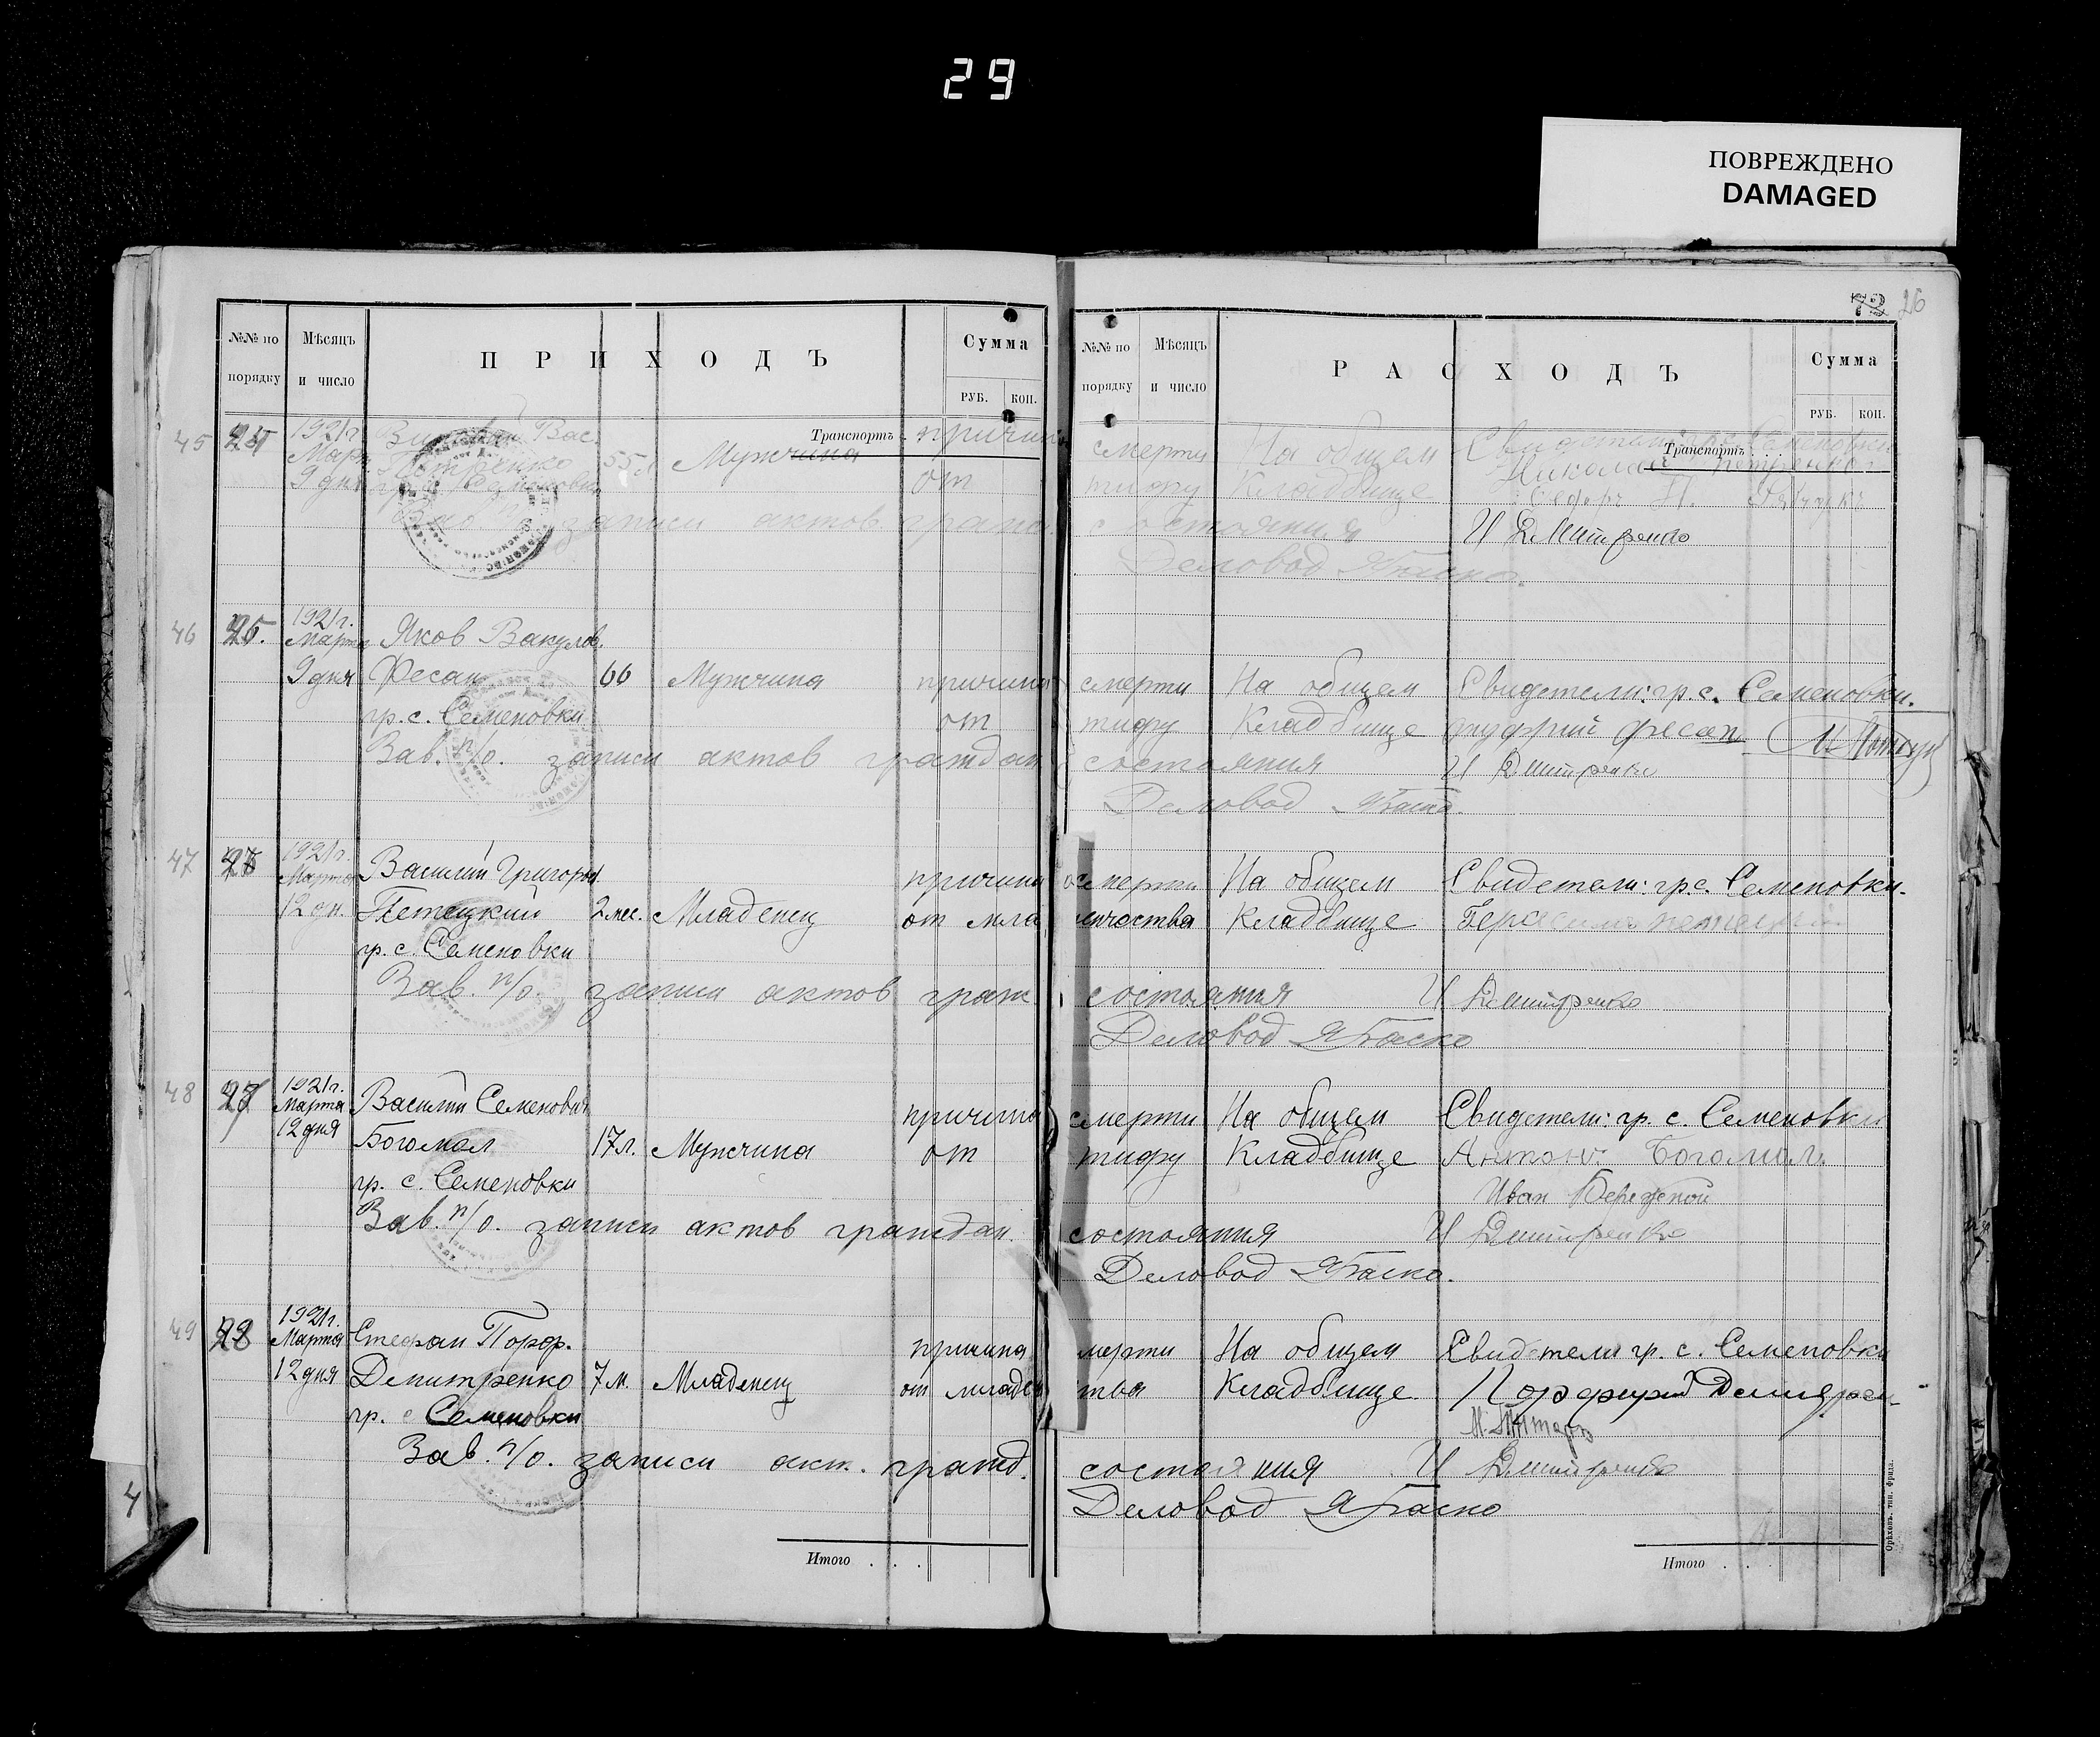 29
ПОВРЕЖДЕНО
DAMAGED
№№ по порядку
Мѣсяцъ и число
ПРИХОДЪ
Сумма
РУБ. КОП.
Транспортъ
45
1921г
Март
9 дня
Вас.
Петренко
гр. с. Семеновки
55 л
Мужчина
причина
от
Зав. п/о. записи актов гражд
46
1921г.
Марта
9 дня
Яков Вакулов.
Фесан
66
Мужчина
причина
гр. с. Семеновки
от
Зав. п/о. записи актов граждан
47
1921г.
Марта
12 дн.
Василий Григоров
причина
Петецкий
2 мес.
Младенец
от мла
гр. с. Семеновки
Зав. п/о. записи актов граж
48
1921г.
Марта
12 дня
Василий Семенович
причина
Богомол
17 л.
Мужчина
от
гр. с. Семеновки
Зав. п/о. записи актов граждан.
49
1921г.
Марта
12 дня
Стефан Порф.
причина
Дмитренко
7 м.
Младенец
от младен
гр. с Семеновки
Зав. п/о. записи акт. гражд.
Итого . . .
4
72 26
№№ по порядку
Мѣсяцъ и число
РАСХОДЪ
Сумма
РУБ. КОП.
Транспортъ . . .
смерти На общем Свидетели: гр. с. Семеновки
Николай Петренко
тифу Кладбище Федоръ П.
состояния И Дмитренко
Деловод ЯБаско.
смерти На общем Свидетели: гр. с. Семеновки.
тифу Кладбище Онуфрий Фесан
состояния И Дмитренко
Деловод ЯБаско.
смерти На общем Свидетели: гр с. Семеновки.
енчества Кладбище Герасимъ Петецкий
состояния И Дмитренко
Деловод ЯБаско
смерти На общем Свидетели: гр. с. Семеновки
тифу Кладбище Антонъ Богомол.
Иван Бережной
состояния И Дмитренко
Деловод ЯБаско.
мерти На общем Свидетели гр. с. Семеновки
тва Кладбище Порфирий Дмитрен-
состояния И Дмитренко
Деловод ЯБаско
Итого . . .
Орѣховъ. тип. Фрида.